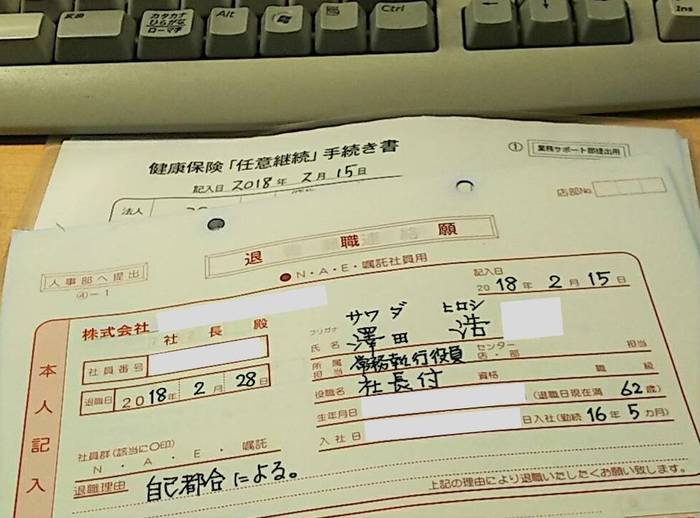 変換
カタカナ
ひらがな
ローマ字
Alt
Ctrl
Ins
健康保険「任意継続」手続き書
① 業務サポート部提出用
記入日 2018年 2月 15日
法人
店部No
退 職 願
人事部へ提出
④-1
●N・A・E・嘱託社員用
記入日
2018年 2月 15日
株式会社
社長殿
フリガナ サワダ ヒロシ
氏名 澤田 浩
社員番号
所属 担当 常務執行役員 センター 店・部 担当
退職日 2018年 2月 28日
役職名 社長付 資格 職級
生年月日 (退職日現在満 62歳)
入社日 日入社(勤続 16年 5カ月)
本人記入
社員群(該当に○印)
N・A・E・嘱託
退職理由 自己都合による。
上記の理由により退職いたしたくお願い致します。